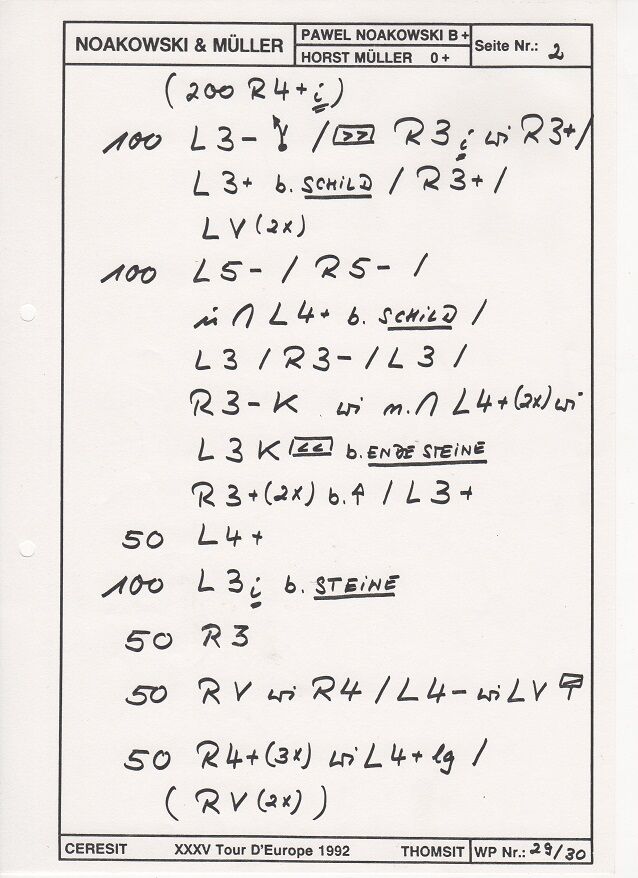 NOAKOWSKI & MÜLLER
PAWEL NOAKOWSKI B+
HORST MÜLLER 0+
Seite Nr.: 2
(200 R4+i)
100 L3- / >> R3i wi R3+/
L3+ b. SCHILD / R3+/
LV(2x)
100 L5- / R5- /
ü ∩ L4+ b. SCHILD /
L3 / R3- / L3 /
R3-K wi n.∩ L4+(2x) wi
L3K << b. ENDE STEINE
R3+(2x) b.↑ / L3+
50 L4+
100 L3i b. STEINE
50 R3
50 RV wi R4 / L4- wi LV
50 R4+(3x) wi L4+ lg /
( RV(2x) )
CERESIT XXXV Tour D'Europe 1992 THOMSIT WP Nr.: 29/30